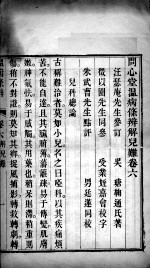 問心堂溫病條辨解兒難卷六
汪瑟庵先生參訂 吳瑭鞠通氏著
徵以園先生同參 受業姪嘉會校字
朱武曹先生點評 男廷蓮同校
兒科總論
古稱難治者莫如小兒名之曰啞科以其疾痛煩
苦不能自達且其臟腑薄藩籬疏易於傳變肌膚
嫩神氣怯易於感觸其用藥也稍呆則滯稍重則
傷稍不對證則莫知其鄉捉風捕影轉救轉劇轉